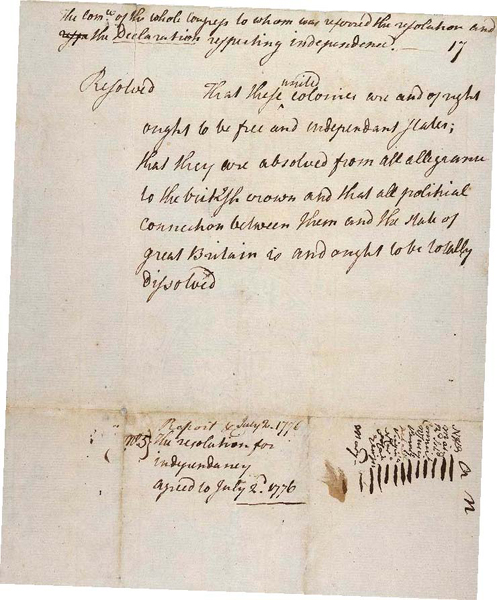 The com.ee of the whole Congress to whom was referred the resolution and
the Declaration respecting independence. —
17
Resolved That these united colonies are and of right
ought to be free and independant states;
that they are absolved from all allegiance
to the british crown and that all political
connection between them and the state of
great Britain is and ought to be totally
dissolved
Report July 2. 1776
No. 5
the resolution for
independancy
agreed to July 2d. 1776